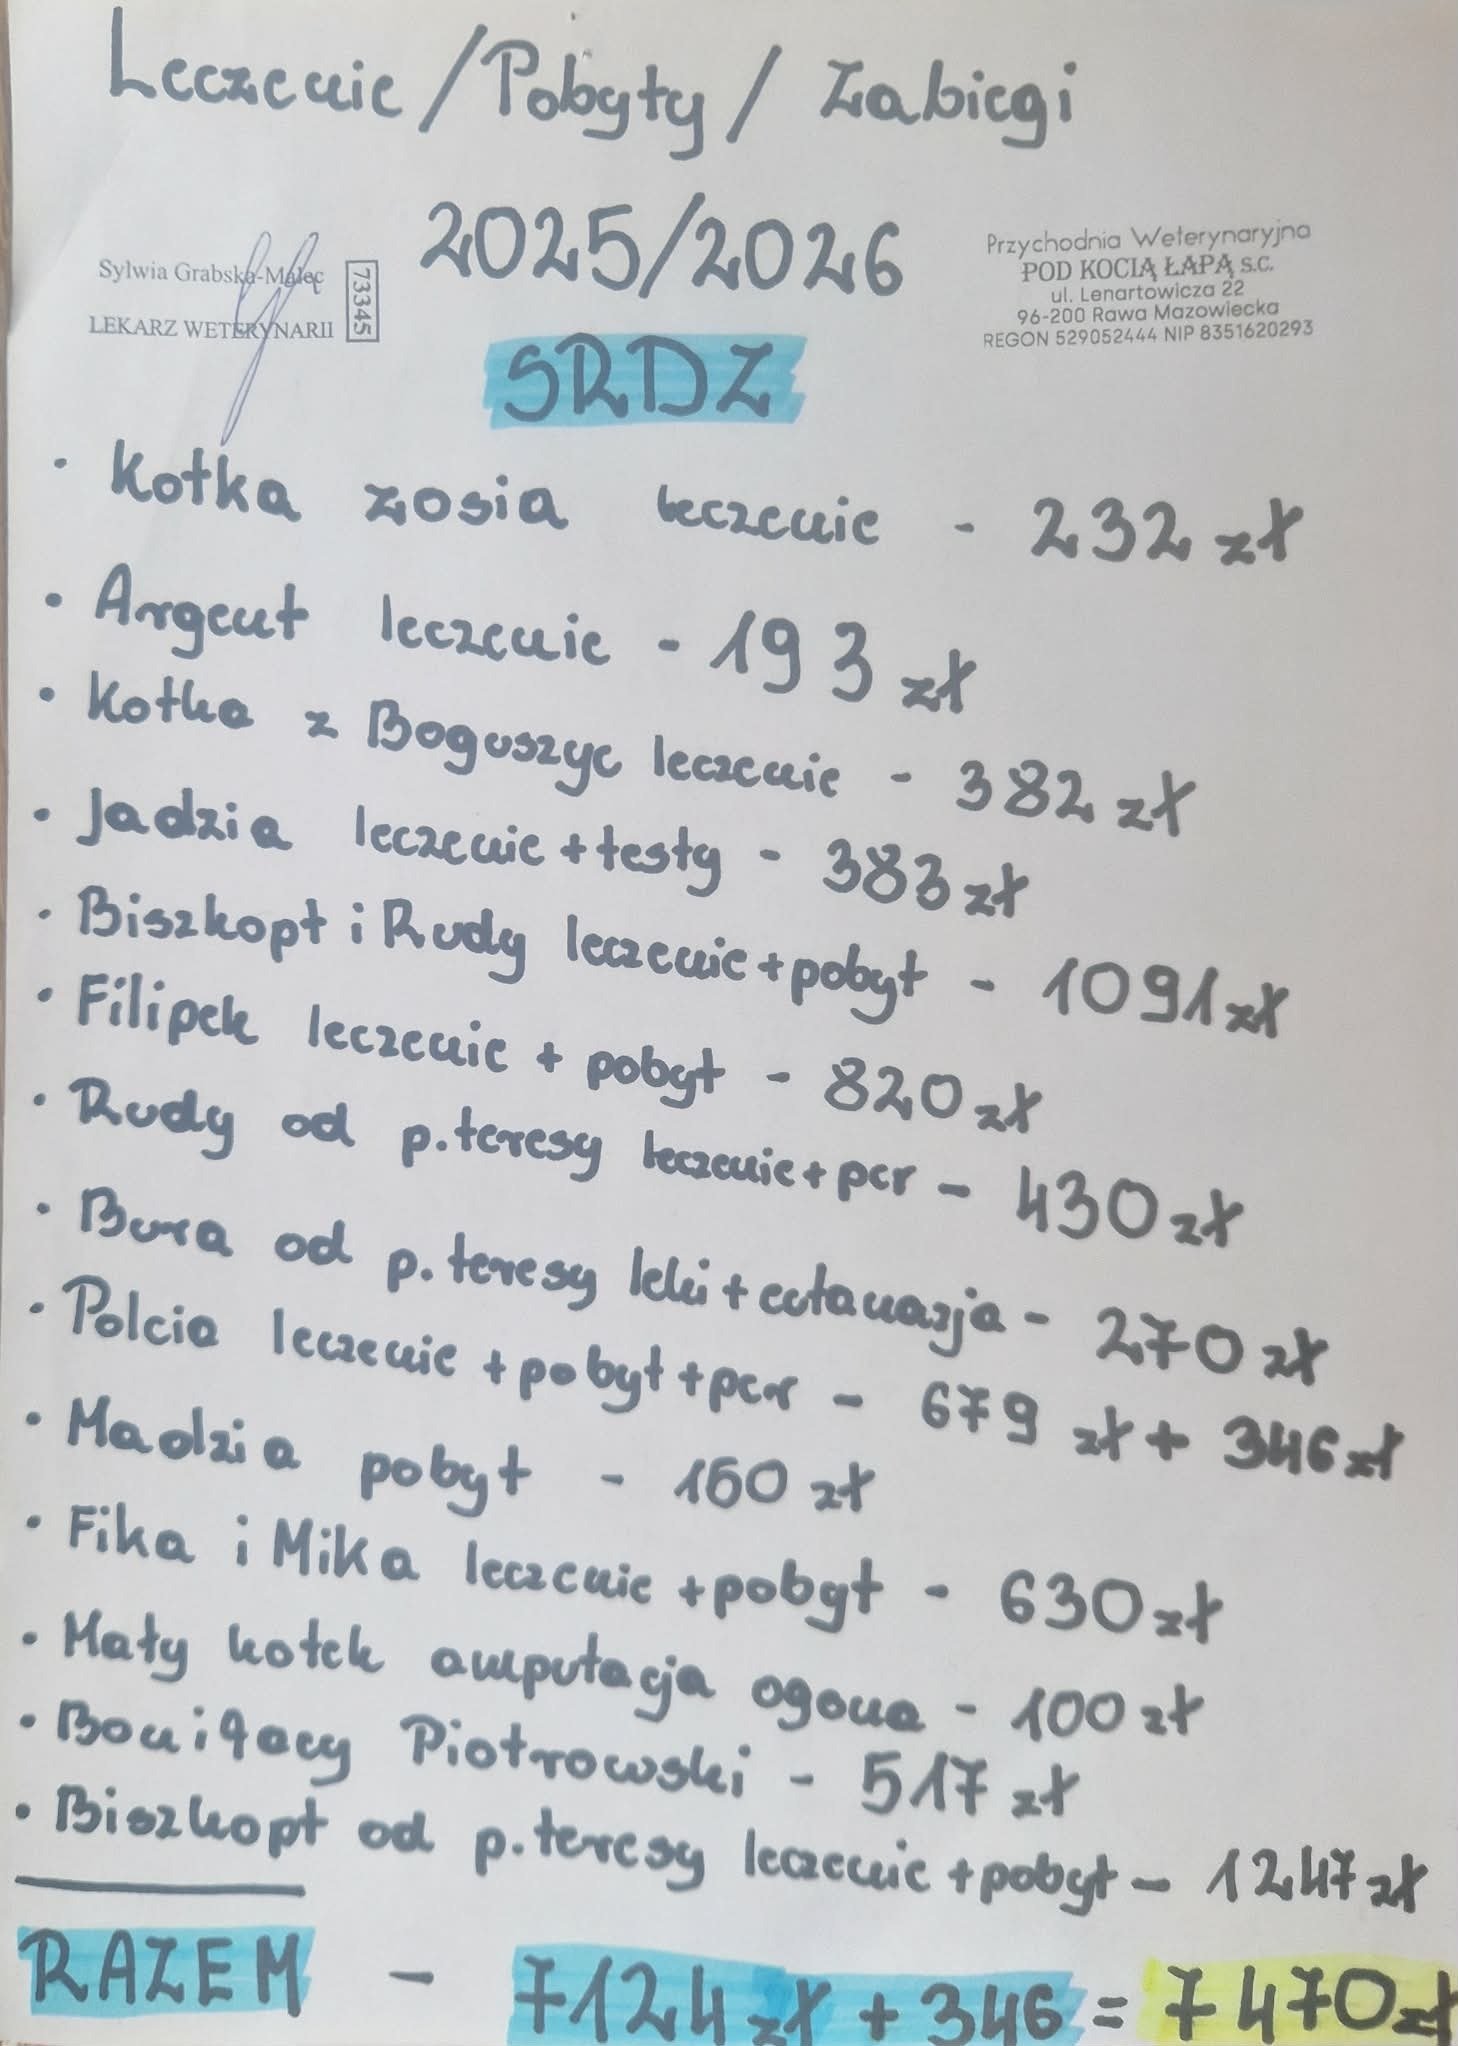 Leczenie / Pobyty / Zabiegi
2025/2026
Sylwia Grabska-Malec
LEKARZ WETERYNARII
73345
Przychodnia Weterynaryjna
POD KOCIĄ ŁAPĄ s.c.
ul. Lenartowicza 22
96-200 Rawa Mazowiecka
REGON 529052444 NIP 8351620293
SRDZ
• Kotka zosia leczenie - 232 zł
• Argent leczenie - 193 zł
• Kotka z Boguszyc leczenie - 382 zł
• Jadzia leczenie + testy - 383 zł
• Biszkopt i Rudy leczenie + pobyt - 1091 zł
• Filipek leczenie + pobyt - 820 zł
• Rudy od p. teresy leczenie + pcr - 430 zł
• Bura od p. teresy leki + eutanazja - 270 zł
• Polcia leczenie + pobyt + pcr - 679 zł + 346 zł
• Madzia pobyt - 150 zł
• Fika i Mika leczenie + pobyt - 630 zł
• Mały kotek amputacja ogona - 100 zł
• Bonifacy Piotrowski - 517 zł
• Biszkopt od p. teresy leczenie + pobyt - 1247 zł
RAZEM - 7124 zł + 346 = 7470 zł